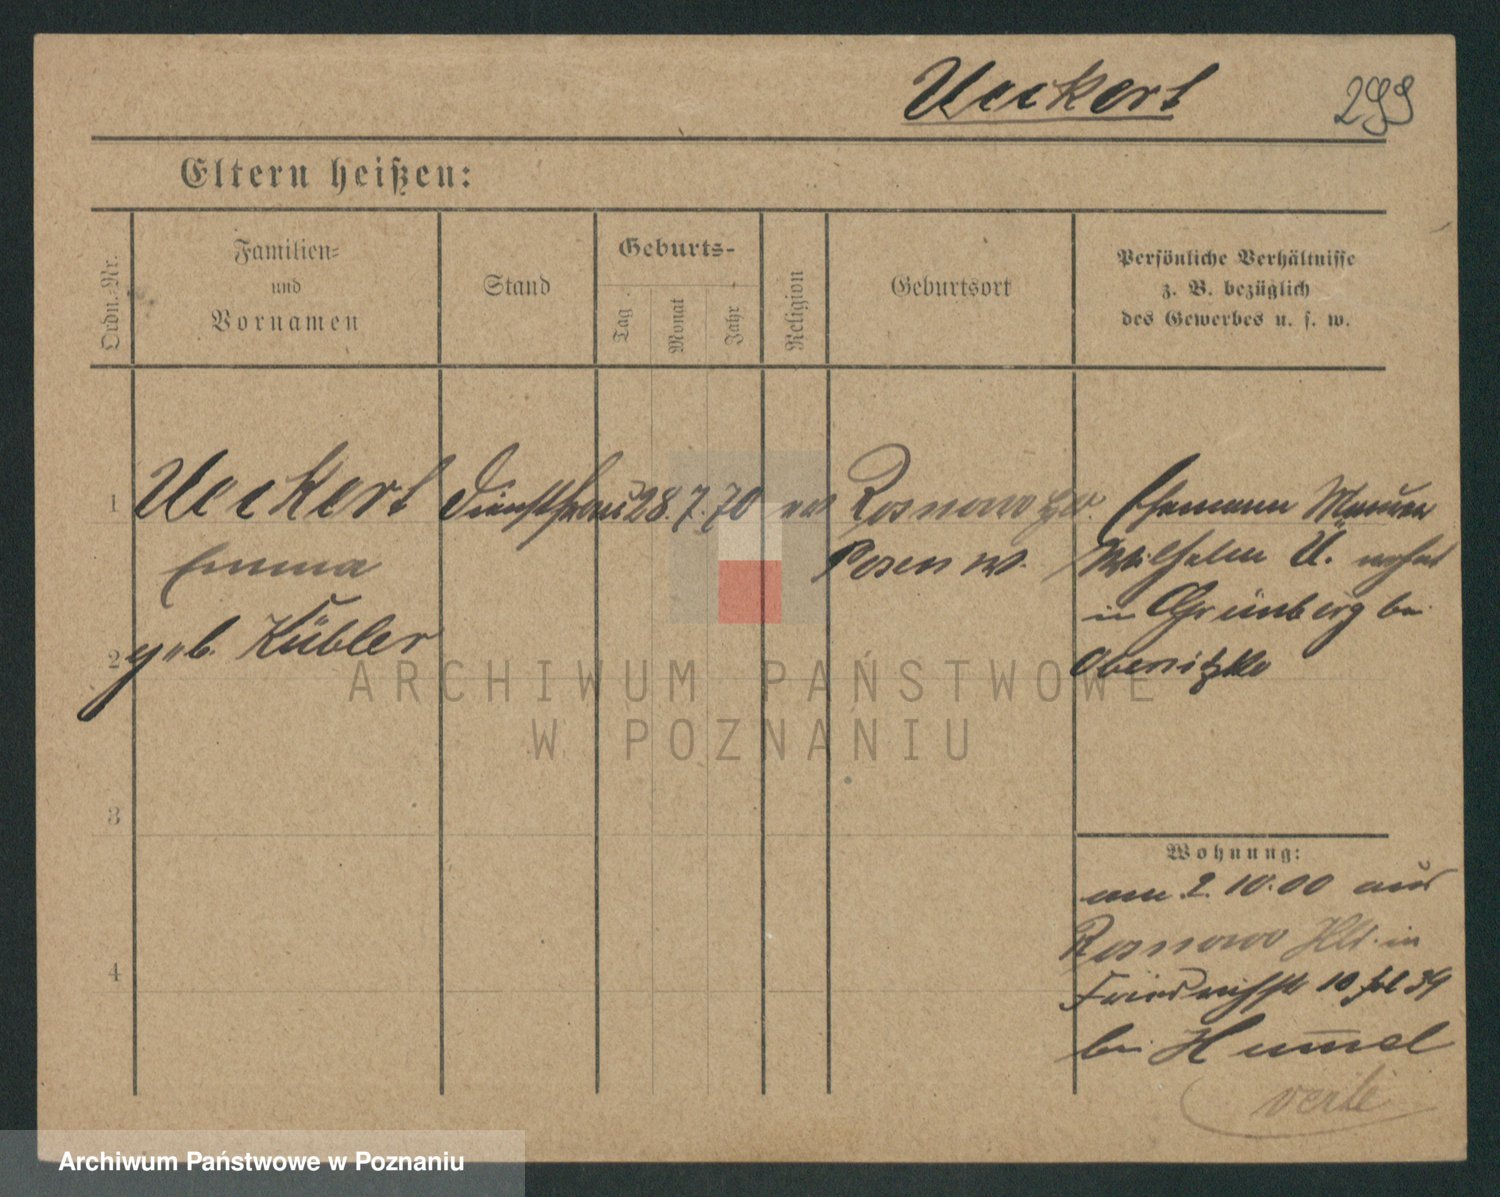 Ueckert 299
Eltern heißen:
Ordn.-Nr.
Familien-
und
Vornamen
Stand
Geburts-
Tag
Monat
Jahr
Religion
Geburtsort
Persönliche Verhältnisse
z. B. bezüglich
des Gewerbes u. s. w.
1 Ueckert Dienstfrau 28. 7. 70 ev Rosnowo
Emma Posen W.
geb. Kübler
Ehemann Maurer
Wilhelm U. wohnt
in Grünberg bei
Obersitzko
2
3
4
Wohnung:
am 2. 10. 00 aus
Rosnowo Hld. in
Friedrichstr 10 fol 39
bei Hummel
verte
ARCHIWUM PAŃSTWOWE
W POZNANIU
Archiwum Państwowe w Poznaniu